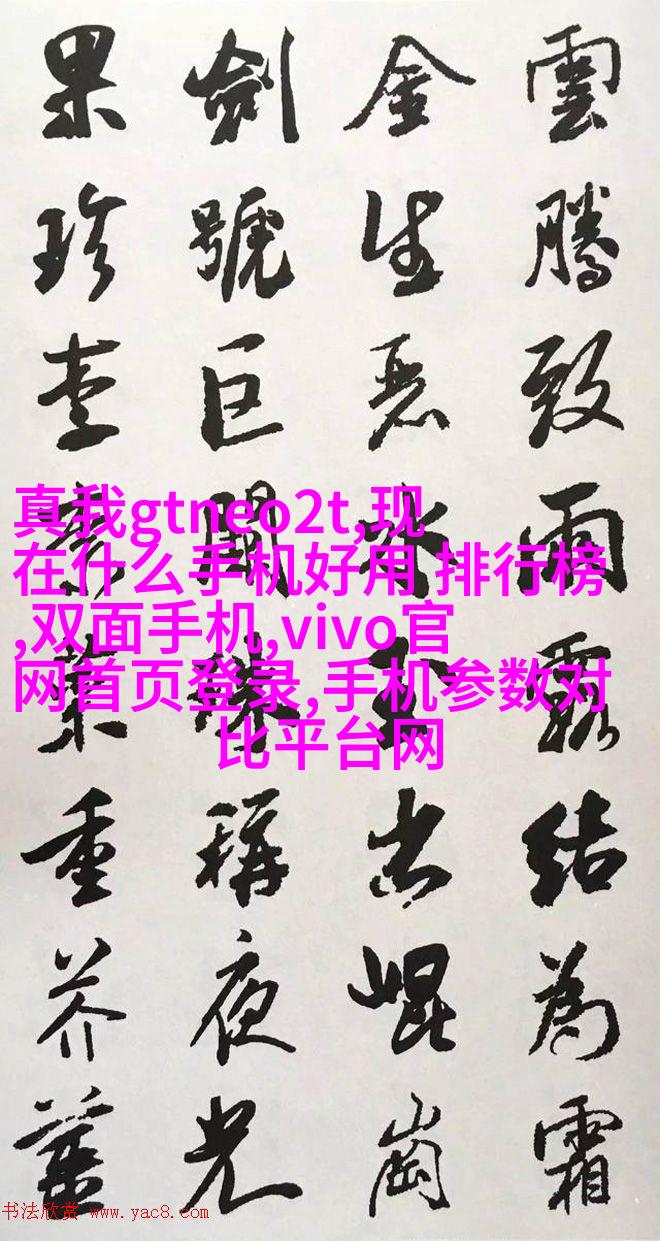 雲騰致雨露結為霜
金生麗水玉出崐崗
劍號巨闕珠稱夜光
果珍李柰菜重芥薑
真我gtneo2t,现
在什么手机好用 排行榜
,双面手机,vivo官
网首页登录,手机参数对
比平台网
书法欣赏 www.yac8.com